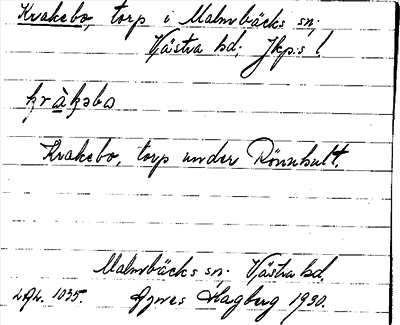 Krakebo, torp i Malmbäcks sn;
Västra hd; Jkp:s l.
kràkəba
Krakebo, torp under Rönnhult.
Malmbäcks sn. Västra hd.
1035. Agnes Hagberg 1930.